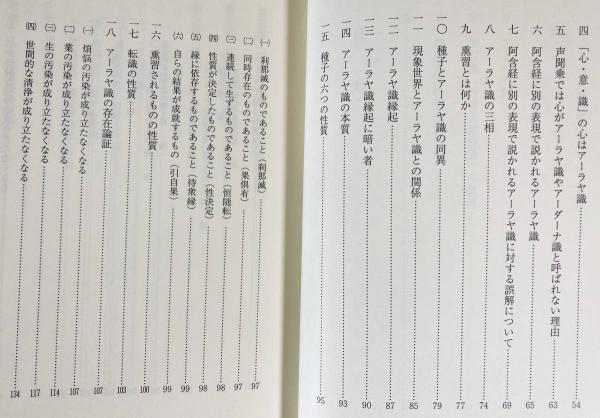 四 「心・意・識」の心はアーラヤ識 54
五 声聞乗では心がアーラヤ識やアーダーナ識と呼ばれない理由 63
六 阿含経に別の表現で説かれるアーラヤ識 65
七 阿含経に別の表現で説かれるアーラヤ識に対する誤解について 69
八 アーラヤ識の三相 74
九 熏習とは何か 77
一〇 種子とアーラヤ識の同異 79
一一 現象世界とアーラヤ識との関係 85
一二 アーラヤ識縁起 87
一三 アーラヤ識縁起に暗い者 90
一四 アーラヤ識の本質 93
一五 種子の六つの性質 95
㈠ 刹那滅のものであること(刹那滅) 97
㈡ 同時存在のものであること(果俱有) 97
㈢ 連続して生ずるものであること(恒随転) 98
㈣ 性質が決定したものであること(性決定) 98
㈤ 縁に依存するものであること(待衆縁) 99
㈥ 自らの結果が成就するもの(引自果) 99
一六 熏習されるものの性質 100
一七 転識の性質 103
一八 アーラヤ識の存在論証 107
㈠ 煩悩の汚染が成り立たなくなる 107
㈡ 業の汚染が成り立たなくなる 114
㈢ 生の汚染が成り立たなくなる 117
㈣ 世間的な清浄が成り立たなくなる 134